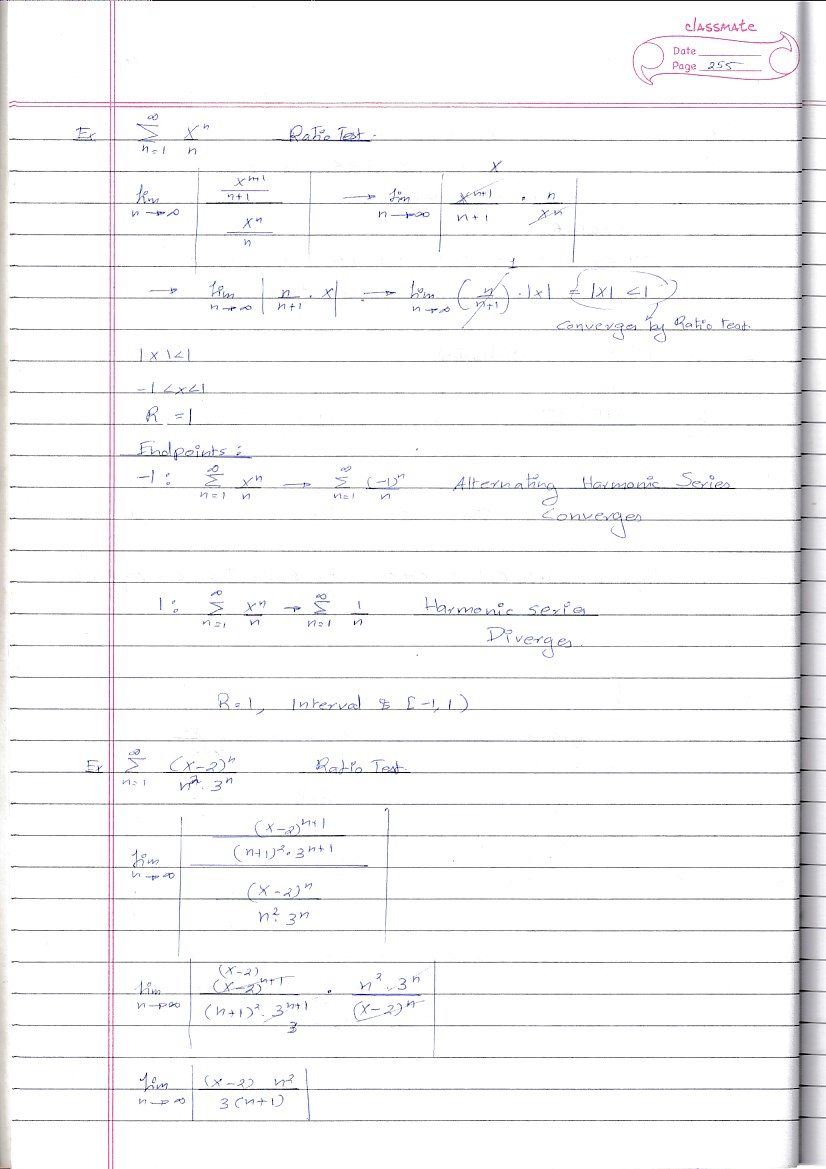 classmate
Date
Page 255
Ex ∞ Σ n=1 x^n / n Ratio Test.
lim n→∞ | (x^(n+1) / n+1) / (x^n / n) | → lim n→∞ | x^(n+1) / n+1 · n / x^n | x
→ lim n→∞ | n / n+1 · x | → lim n→∞ (n / n+1) · |x| = |x| < 1 1
Converges by Ratio test
|x| < 1
-1 < x < 1
R = 1
Endpoints:
-1: ∞ Σ n=1 x^n / n → ∞ Σ n=1 (-1)^n / n Alternating Harmonic Series
Converges
1: ∞ Σ n=1 x^n / n → ∞ Σ n=1 1 / n Harmonic series
Diverges.
R=1, Interval : [-1, 1)
Ex ∞ Σ n=1 (x-2)^n / n^2 · 3^n Ratio Test
lim n→∞ | ((x-2)^(n+1) / (n+1)^2 · 3^(n+1)) / ((x-2)^n / n^2 · 3^n) |
lim n→∞ | (x-2) (x-2)^(n+1) / (n+1)^2 · 3^(n+1) 3 · n^2 · 3^n / (x-2)^n |
lim n→∞ | (x-2) n^2 / 3(n+1) |